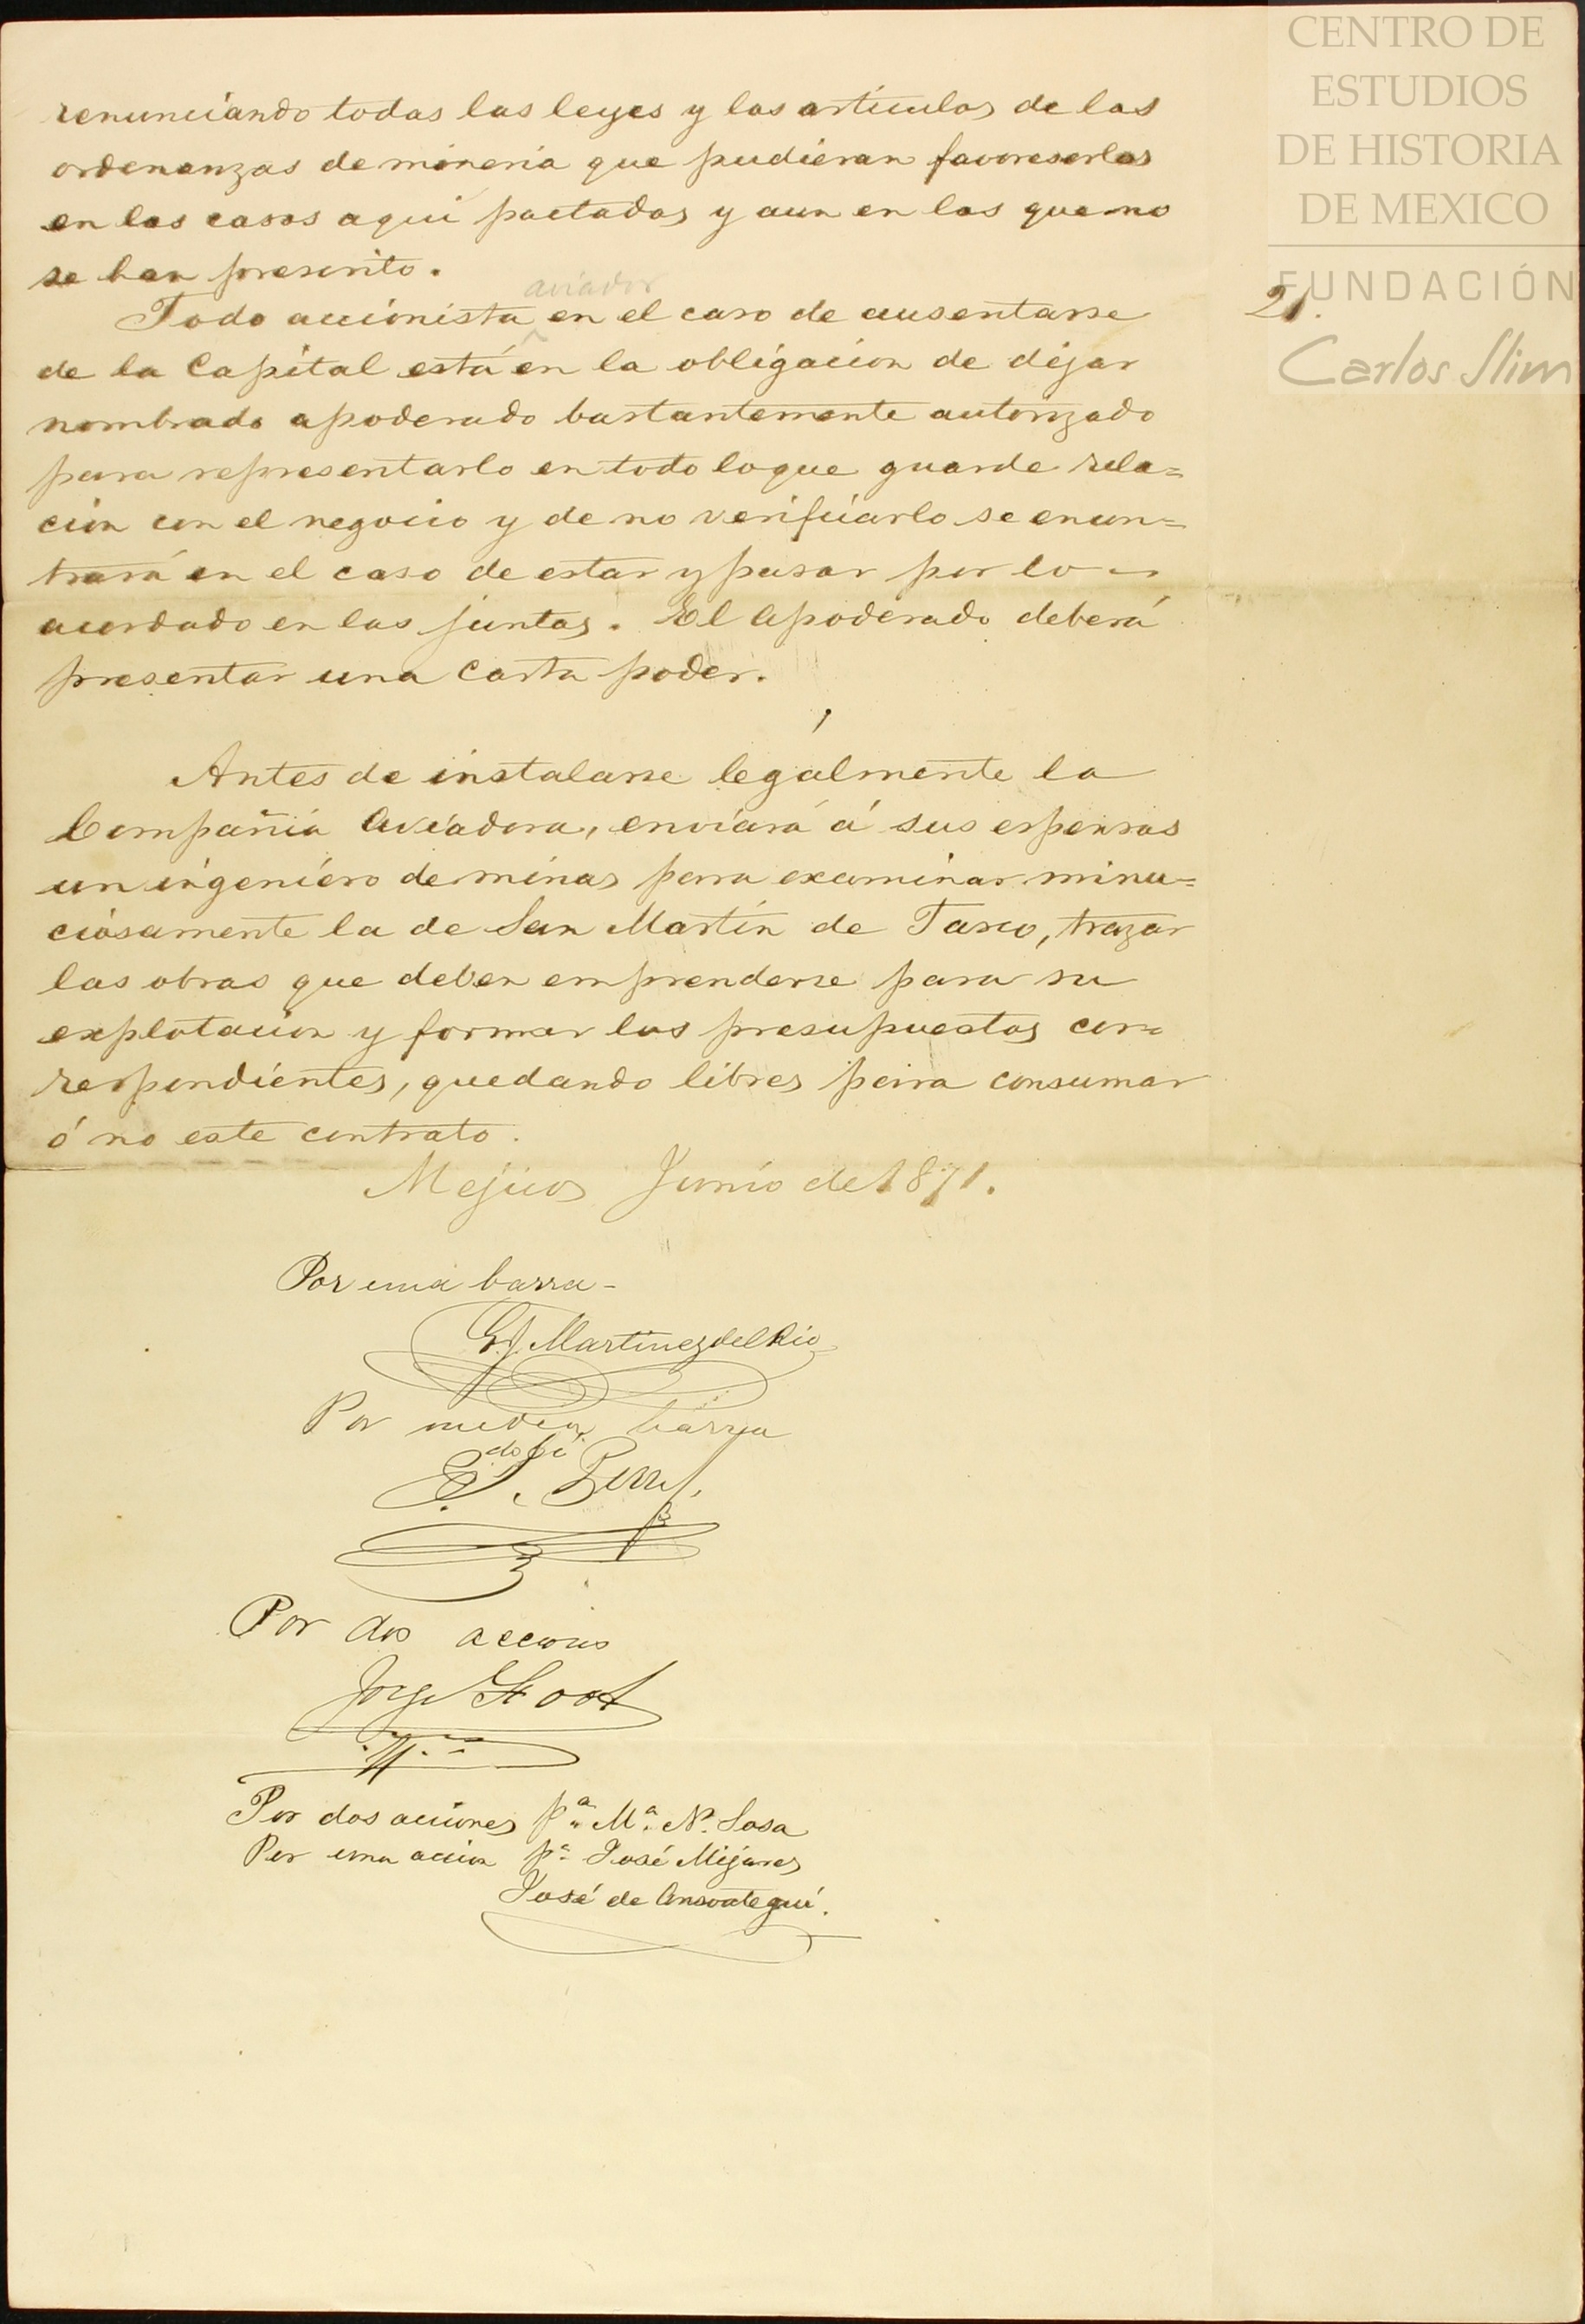 CENTRO DE
ESTUDIOS
DE HISTORIA
DE MEXICO
FUNDACIÓN
Carlos Slim
renunciando todas las leyes y los artículos de las
ordenanzas de minería que pudieran favoreserlos
en los casos aquí pactados y aun en los que no
se han prescrito.
aviador
Todo accionista en el caso de ausentarse
21.
de la Capital está en la obligacion de dejar
nombrado apoderado bastantemente autorizado
para representarlo en todo lo que guarde rela=
cion con el negocio y de no verificarlo se encon=
trará en el caso de estar y pasar por lo
acordado en las juntas. El Apoderado deberá
presentar una Carta poder.
Antes de instalarse legalmente la
Compañía Aviadora, enviará á sus espensas
un ingeniero de minas para examinar minu=
ciosamente la de San Martín de Tasco, trazar
las obras que deben emprenderse para su
explotacion y formar los presupuestos cor=
respondientes, quedando libres para consumar
ó no este contrato.
Mejico Junio de 1871.
Por una barra-
G. J. Martinez del Rio
Por media barra
Por dos acciones
Por dos acciones p.ª M.ª N. Sosa
Por una accion p.ª José Mijares
José de Ansoategui.